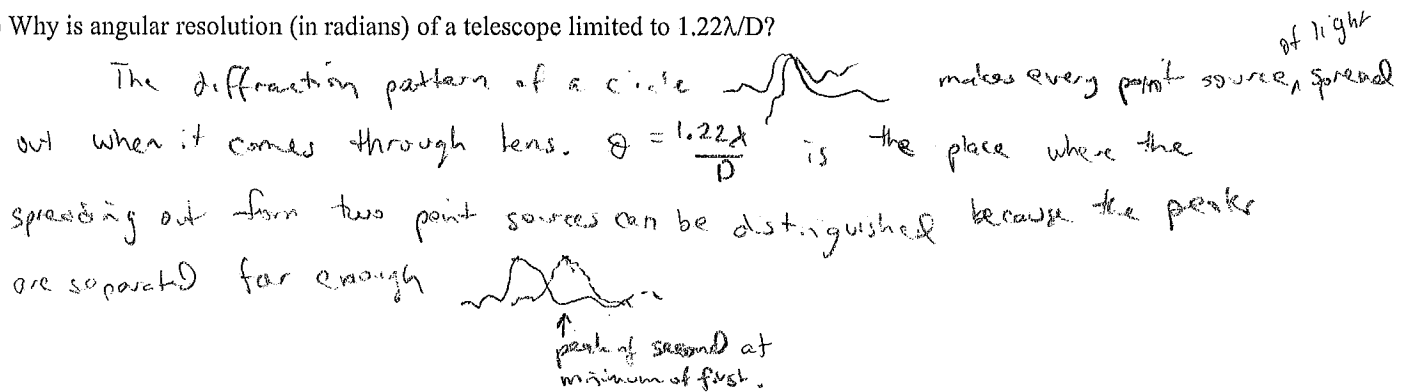 Why is angular resolution (in radians) of a telescope limited to 1.22λ/D?
of light
The diffraction pattern of a circle makes every point source ^ spread
out when it comes through lens. θ = 1.22λ/D is the place where the
spreading out from two point sources can be distinguished because the peaks
are separated far enough
↑
peak of second at
minimum of first.